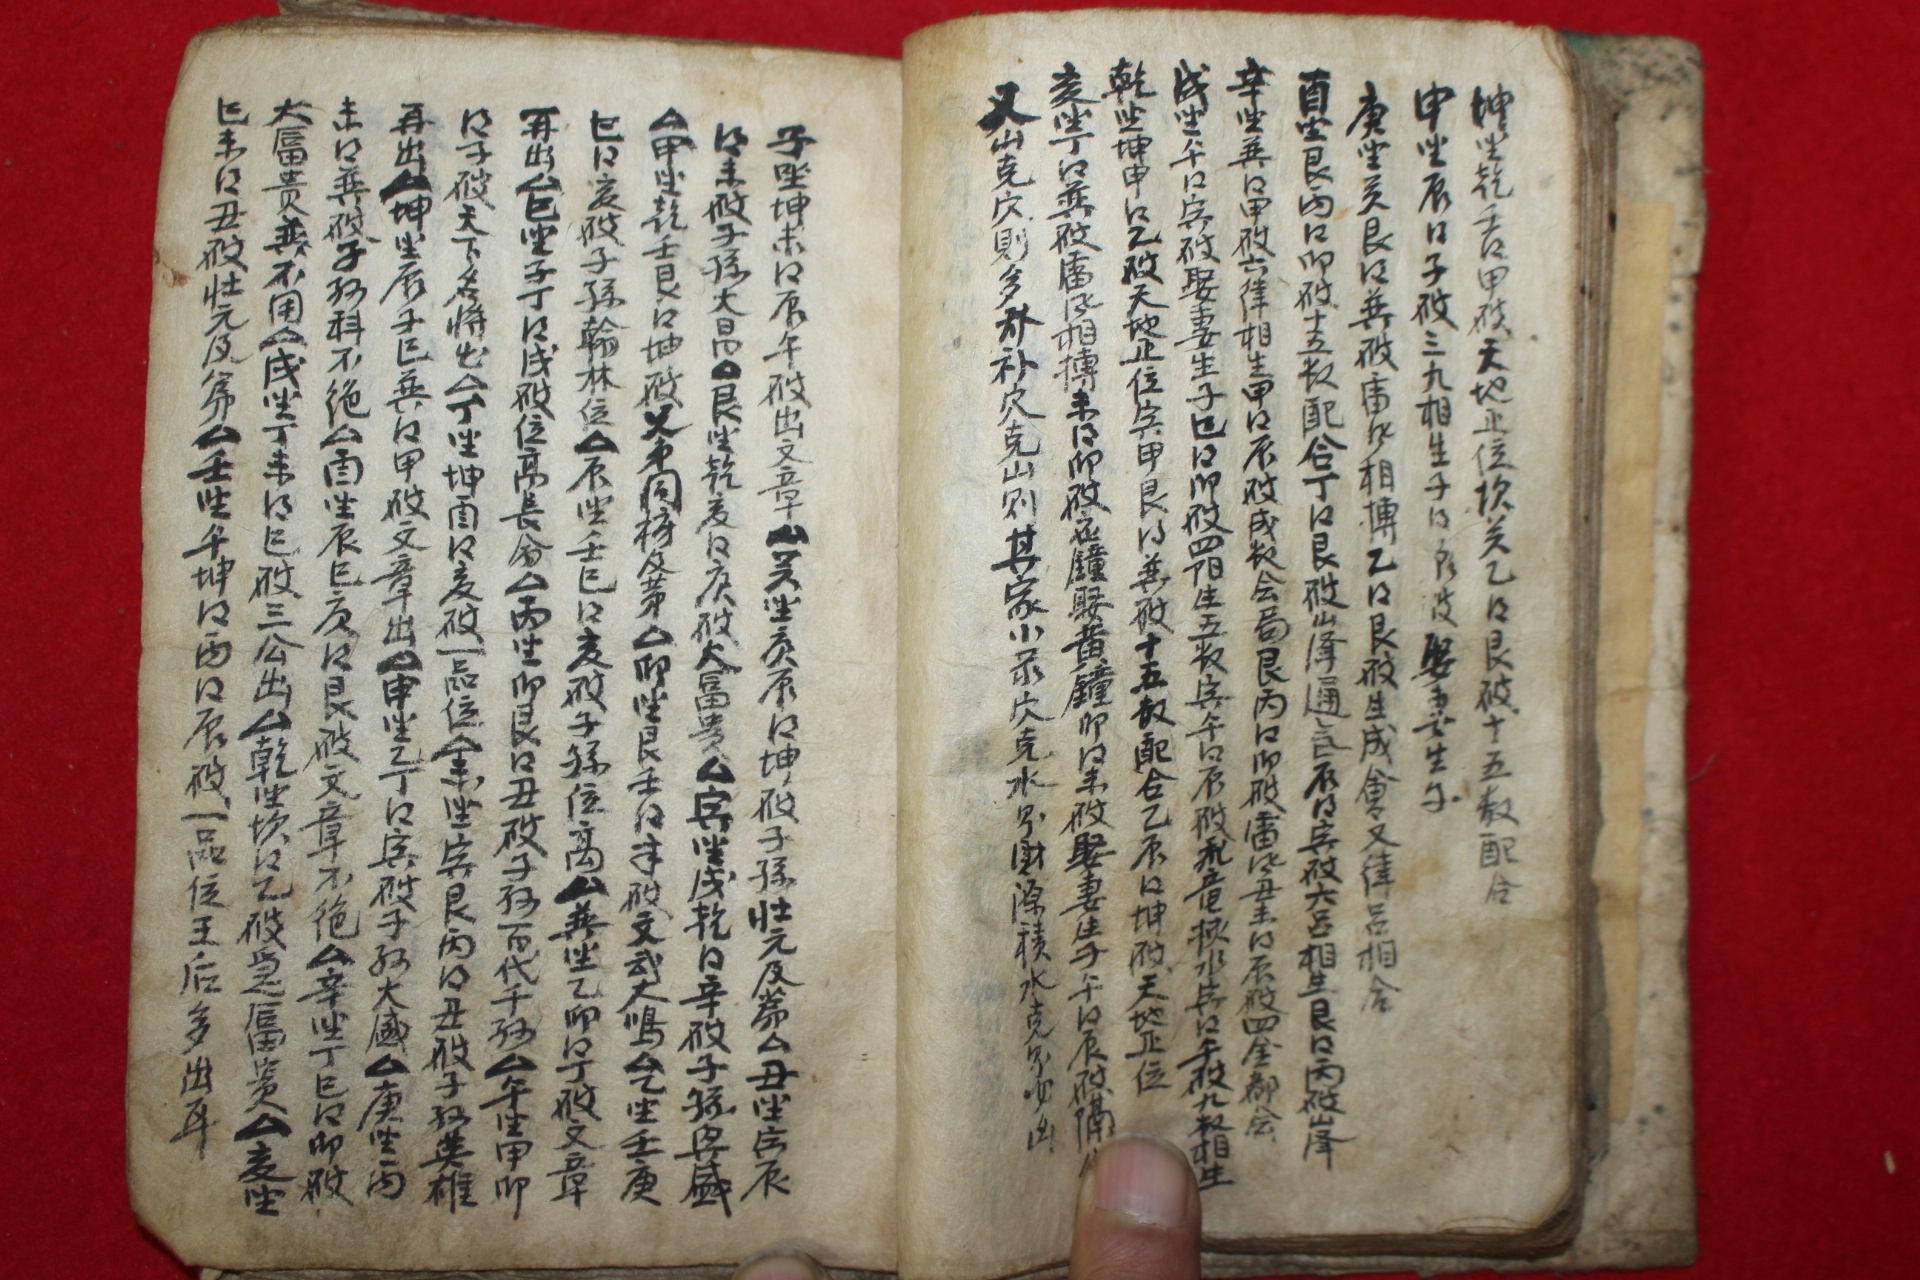 坤坐乾壬得甲破天地正位坎癸乙得艮破十五数配合
申坐辰得子破三九相生子得辰破娶妻生子
庚坐癸艮得巽破雷风相搏乙得艮破生成會又律呂相合
酉坐艮丙得卯破十五数配合丁得艮破山泽通气辰得寅破六呂相生艮得丙破山泽
辛坐巽得甲破六律相生甲得辰破成数会局艮丙得卯破雷风丑未得辰破四金都会
戌坐午得寅破娶妻生子巳得卯破四阳生五数寅午得辰破 水 得午破九数相生
乾坐坤申得乙破天地正位寅甲艮得巽破十五数配合乙辰得坤破天地正位
亥坐丁得巽破雷风相搏未得卯破 鐘娶黄鐘卯得未破娶妻生子午得辰破隔
又山克穴則多 补穴克山則其家小 穴克水 財源積水克 凶
子坐坤未得辰午破出文章△癸坐庚辰得坤破子孫壮元及第△丑坐庚辰
得未破子孫大昌△艮坐乾亥得庚破大富貴△寅坐戌乾得辛破子孫興盛
△甲坐乾壬艮得坤破父子同榜及第△卯坐艮壬得未破文武大鳴△乙坐壬庚
巳得亥破子孫翰林位△辰坐壬巳得亥破子孫位高△巽坐乙卯得丁破文章
再出△巳坐子丁得戌破位高長 △丙坐卯艮得丑破子孙百代千孙△午坐甲卯
得子破天下名將出△丁坐坤酉得亥破一品位△未坐寅艮丙得丑破子孙英雄
再出△坤坐辰子巳巽得甲破文章出△申坐乙丁得寅破子孙大盛△庚坐丙
未得巽破子孙科不绝△酉坐辰巳庚得艮破文章不绝△辛坐丁巳得卯破
大富貴巽不用△戌坐丁未得巳破三公出△乾坐坎得乙破 富貴△亥坐
巳未得丑破壮元及第△壬坐午坤得丙得辰破一品位王后多出耳